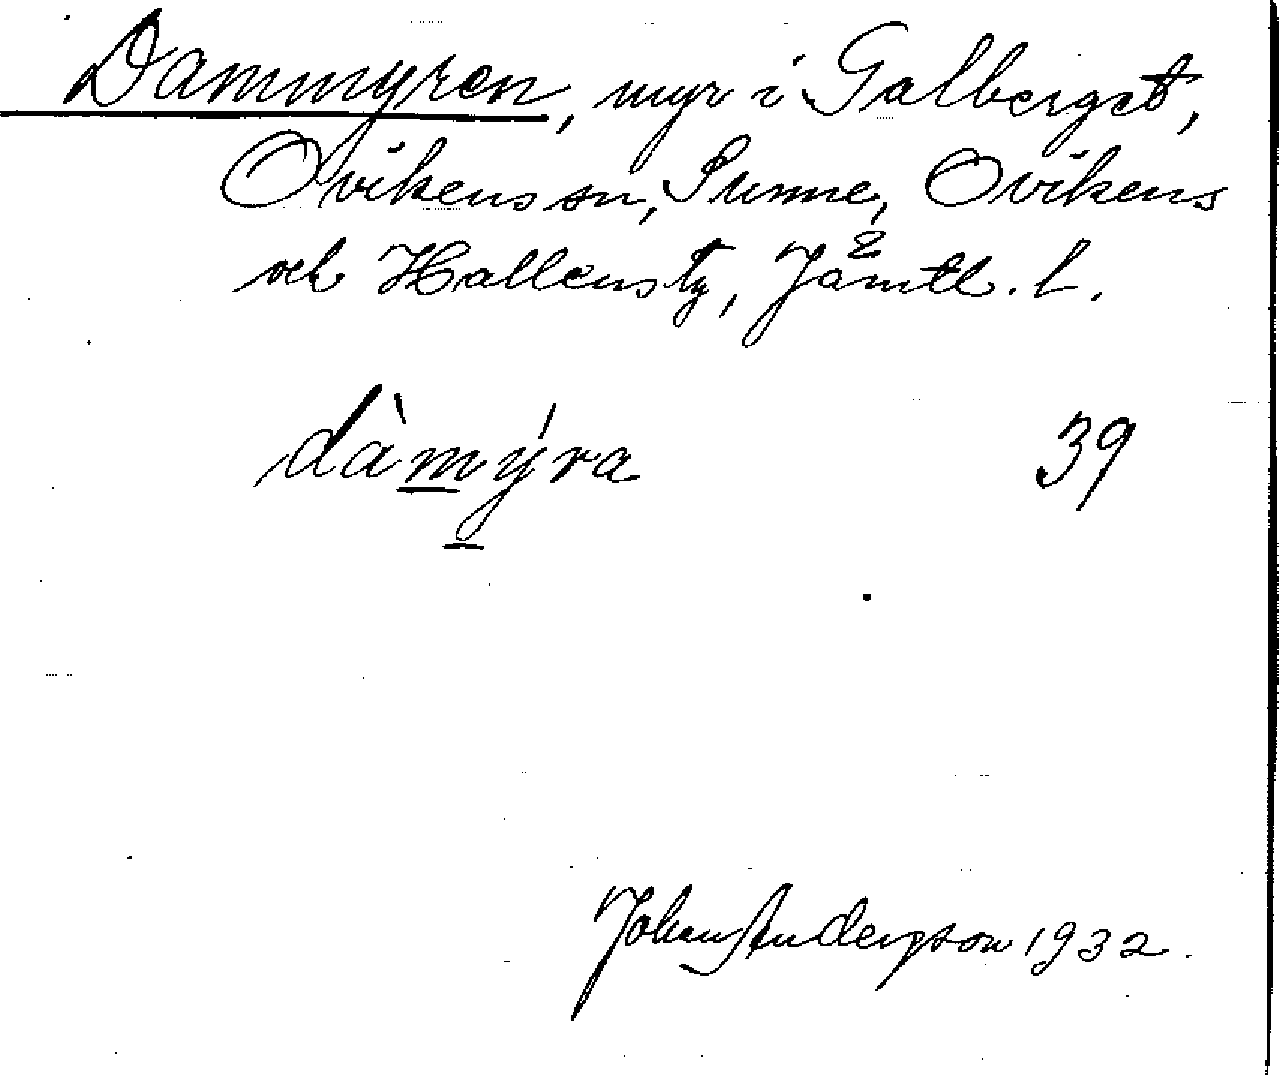 Dammyren, myr i Galberget,
Ovikens sn, Sunne, Ovikens
och Hallens tg, Jämtl. l.
dàmýra 39
Johan Andersson 1932.